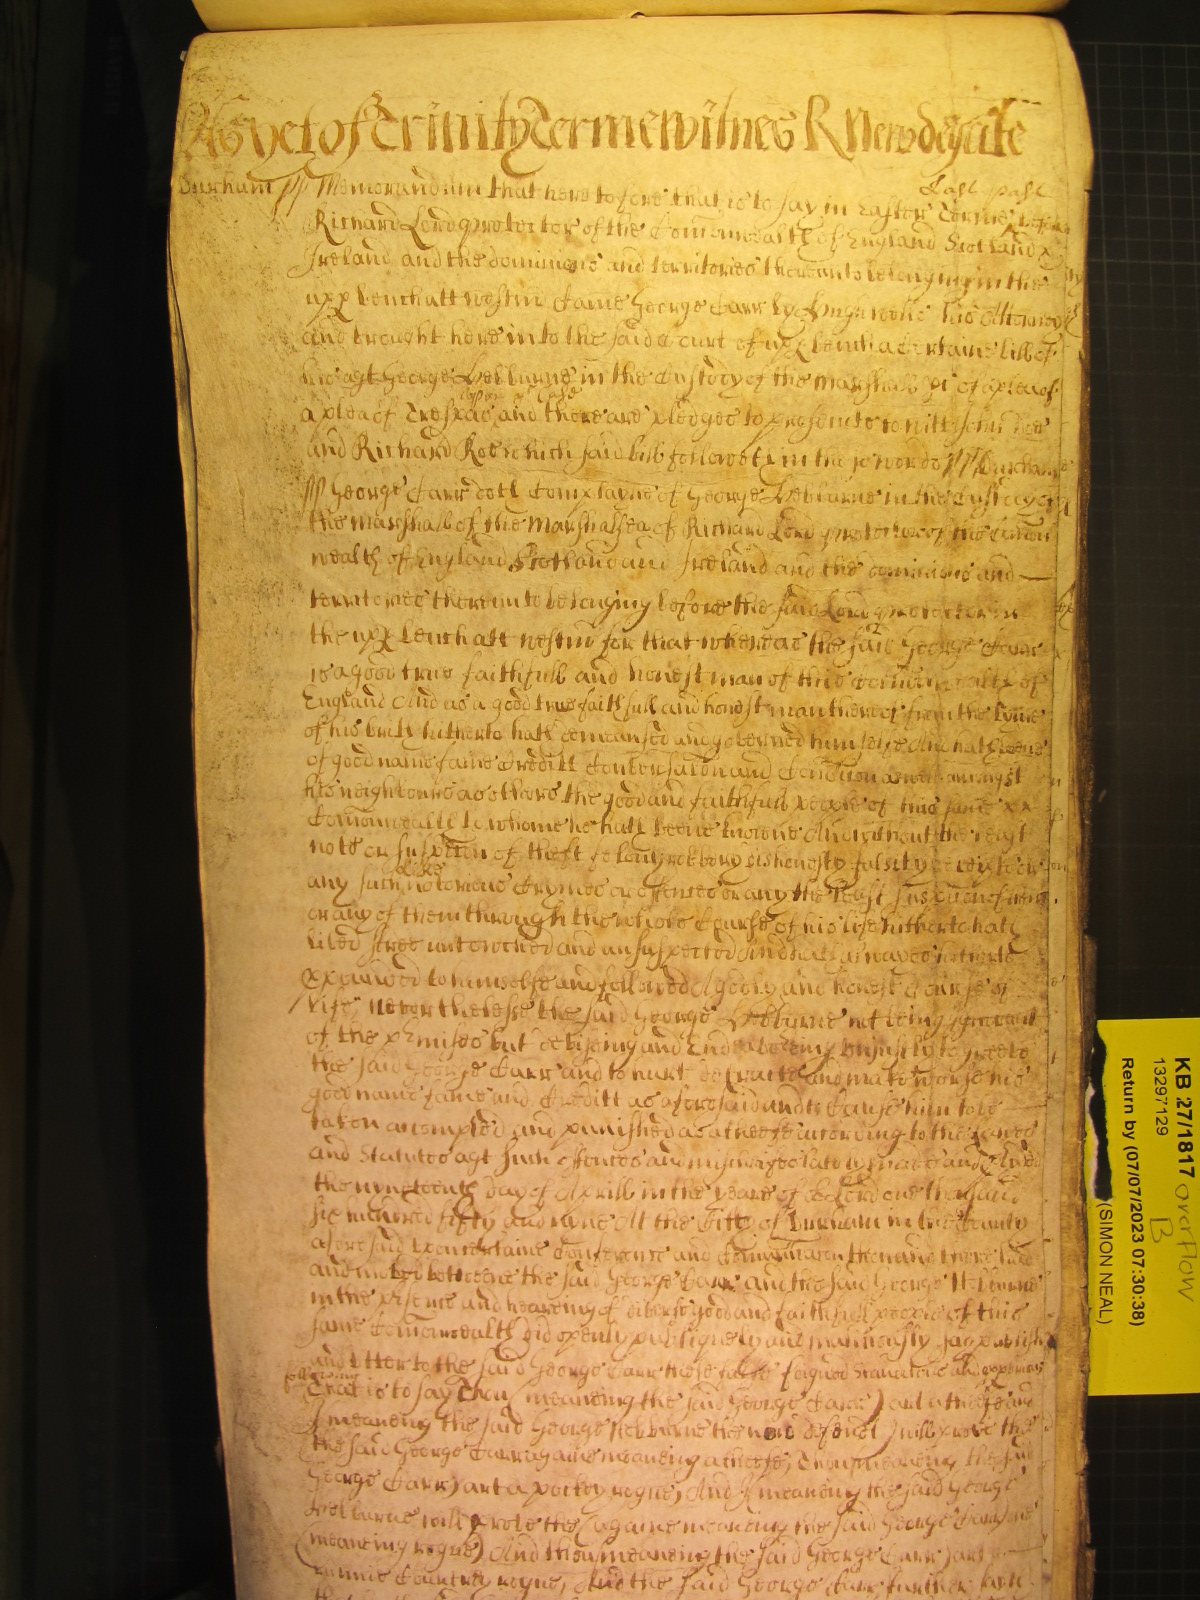 As yet of Trinity Terme witnes R Newdegate
Durham ss Memorandum that heretofore that is to say in Easter Terme Last past before
Richard Lord protector of the Comonwealth of England Scotland x
Ireland and the dominions and territories thereunto belonging in the
upp bench att Westm Came George Carr by Hugh his Attorney
and brought here into the said Court of upp bench a certaine bill of
his agt George Hebburne in the Custody of the marshall &c of a plea of
a plea of Trespas upon the Case and there are pledges to prosecute to witt John Doe
and Richard Roe which said bill followeth in these words ss Durham
ss George Carr doth Complayne of George Hebburne in the Custody of
the marshall of the marshalsea of Richard Lord protector of the Comon
wealth of England Scotland and Ireland and the dominions and
territories thereunto belonging before the said Lord protector in
the upp bench att westm for that whereas the said George Carr
is a good true faithfull and honest man of this Comonwealth of
England And as a good true faithfull and honest man thereof from the tyme
of his birth hitherto hath demeaned and governed himselfe And hath beene
of good name fame Creditt Conversacon and Condicon as well amongst
his neighbours as others the good and faithfull people of this same xx
Comonwealth to whome he hath beene knowne And without the least
note or suspicon of theft felony robbery dishonesty falsity deceyt or
any such like notorious Crymes or offences or any the least suspicon of them
or any of them through the whole Course of his life hitherto hath
lived free untouched and unsuspected And hath alwayes hitherto
expained to himselfe and followed A godly and honest Course of
life, Neverthelesse the said George Hebburne not being ignorant
of the pmisses but devising and Endeavoring unjustly to greeve
the said George Carr and to hurt detracte and make worse his
good name fame and Creditt as aforesaid and to Cause him to be
taken attempted and punished as a theefe according to the Lawes
and Statutes agt such offences and lately made and
the nyneteenth day of Aprill in the yeare of o Lord one thousand
six hundred fifty and nyne At the Citty of Durham in the County
aforesaid upon Certaine Conference and Comunicacon then and there had
and moved betweene the said George Carr and the said George Hebburne
in the psence and heareing of diverse good and faithfull people of this
same Comonwealth did openly publiquely and maliciously say publish
and utter to the said George Carr these false feigned scandalous and opprobrious
following That is to say Thou (meaneing the said George Carr) art a theefe and
I meaneing the said George Hebburne the now defend) will prove thee
the said George Carr againe meaneing a theefe, Thou meaneing the said
George Carr) art a pockey rogue, And I meaneing the said George
Hebburne will prove thee (againe meaneing the said George Carr one
(meaneing rogue) And thou meaneing the said George Carr) art a
Country rogue, And the said George Carr further saith
KB 27/1817 overflow
B
13297129
Return by (07/07/2023 07:30:38)
(SIMON NEAL)